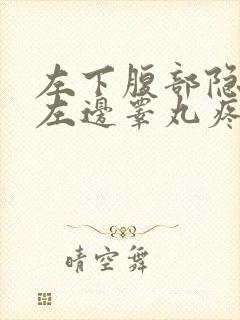 左下腹部隐
左邊睾丸疼
晴空舞